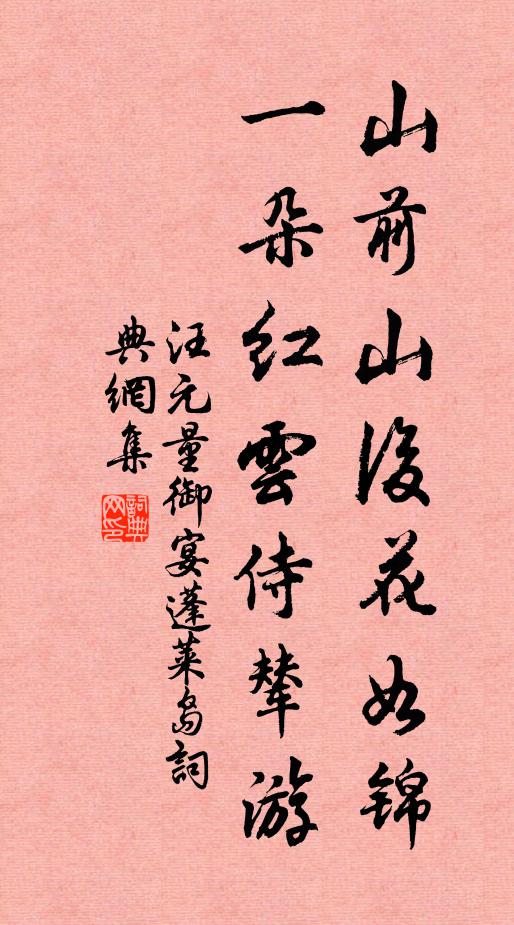 山前山後花如錦
一朵紅雲侍輦游
汪元量御宴蓬萊島詞
典網集
詞典網印